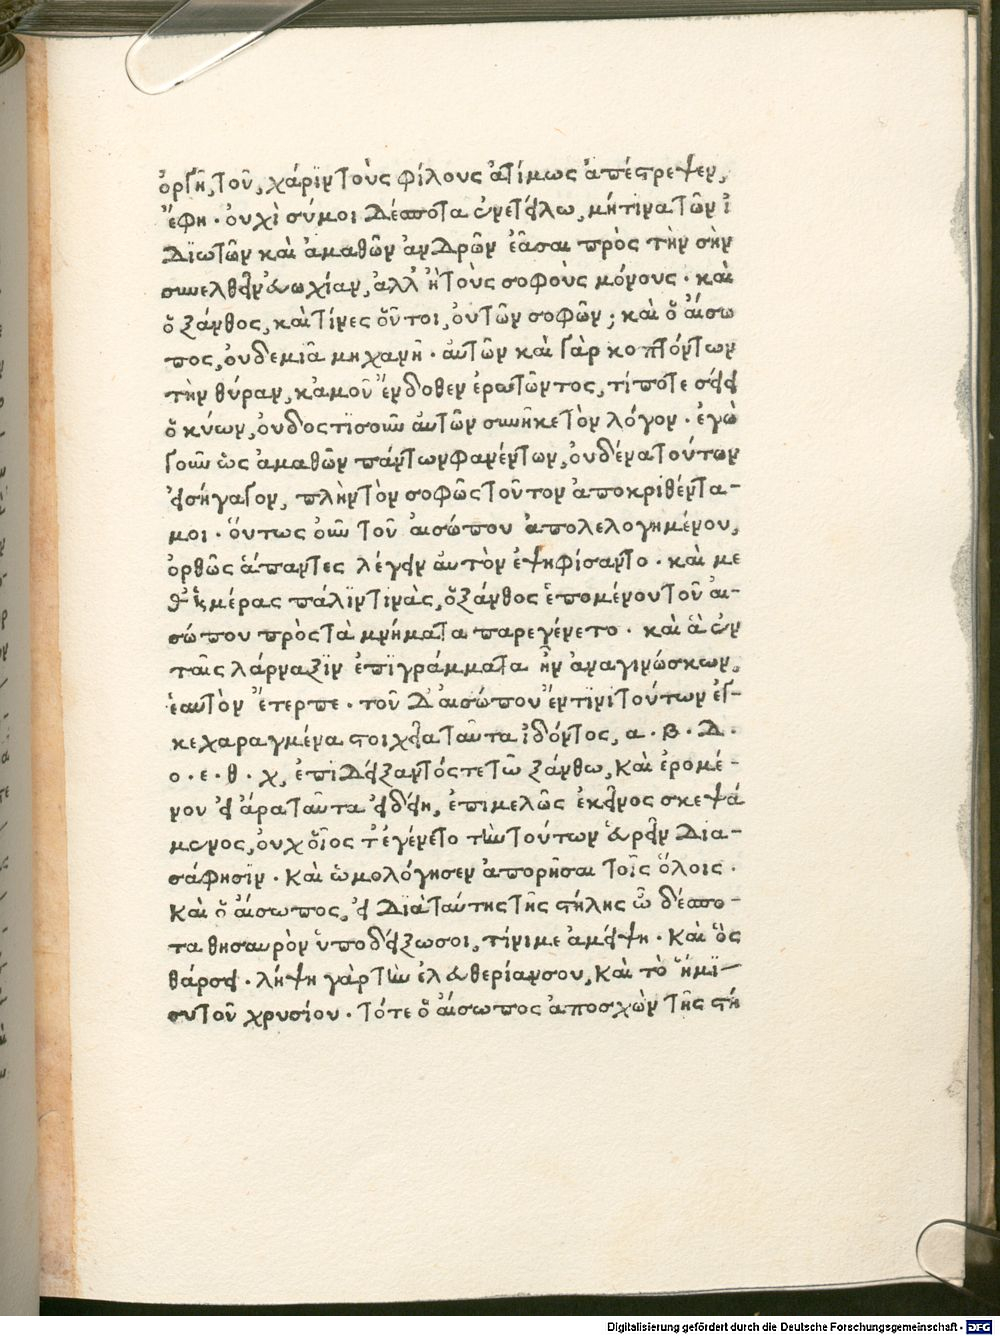 ὀργῇ, τοῦ, χάριν τοὺς φίλους ἀτίμως ἀπέστρεψεν,
ἔφη · ὀυχὶ σύμοι δέσποτα ἐνετείλω, μήτινα τῶν ἰ
διωτῶν καὶ ἀμαθῶν ἀνδρῶν ἐᾶσαι πρὸς τὴν σὴν
συνελθεῖν ἐυωχίαν, ἀλλ' ἢ τοὺς σοφοὺς μόνους · καὶ
ὁ ξάνθος, καὶ τίνες ὅυτοι, ὀυ τῶν σοφῶν; καὶ ὁ ἄισω
πος, ὀυδεμιᾶ μηχανῆ · ἀυτῶν καὶ γὰρ κοπτόντων
τὴν θύραν, κἀμοῦ ἔνδοθεν ἐρωτῶντος, τί ποτε σείει
ὁ κύων, ὀυδοστισοῦν ἀυτῶν συνῆκε τὸν λόγον · ἐγὼ
γοῦν ὡς ἀμαθῶν πάντων φανέντων, ὀυδένα τούτων
εἰσήγαγον, πλὴν τὸν σοφῶς τοῦτον ἀποκριθέντα-
μοι · ὅυτως ὀυν τοῦ ἀισώπου ἀπολελογημένου,
ὀρθῶς ἅπαντες λέγειν ἀυτὸν ἐψηφίσαντο · καὶ με
θ' ἡμέρας πάλιν τινὰς, ὁ ξάνθος ἑπομένου τοῦ ἀι-
σώπου πρὸς τὰ μνήματα παρεγένετο · καὶ ἃ ἐν
ταῖς λάρναξιν ἐπιγράμματα ἦν ἀναγινώσκων,
ἑαυτὸν ἔτερπε · τοῦ δ' ἀισώπου ἔν τινι τούτων ἐγ-
κεχαραγμένα στοιχεῖα ταῦτα ἰδόντος, α · β · δ ·
ο · ε · θ · χ, ἐπιδείξαντός τε τῶ ξάνθω, καὶ ἐρομέ-
νου εἰ ἄρα ταῦτα εἰδείη, ἐπιμελῶς ἐκεῖνος σκεψά
μενος, ὀυχ ὅιός τ' ἐγένετο τὴν τούτων ἑυρεῖν δια-
σάφησιν · καὶ ὡμολόγησεν ἀπορῆσαι τοῖς ὅλοις ·
καὶ ὁ ἄισωπος, εἰ διὰ ταύτης τῆς στήλης ὦ δέσπο-
τα θησαυρὸν ὑποδείξω σοι, τίνι με ἀμείψη · καὶ ὃς
θάρσει · λήψη γὰρ τὴν ἐλευθερίαν σου, καὶ τὸ ἥμι-
συ τοῦ χρυσίου · τότε ὁ ἄισωπος ἀποσχὼν τῆς στή
Digitalisierung gefördert durch die Deutsche Forschungsgemeinschaft - DFG